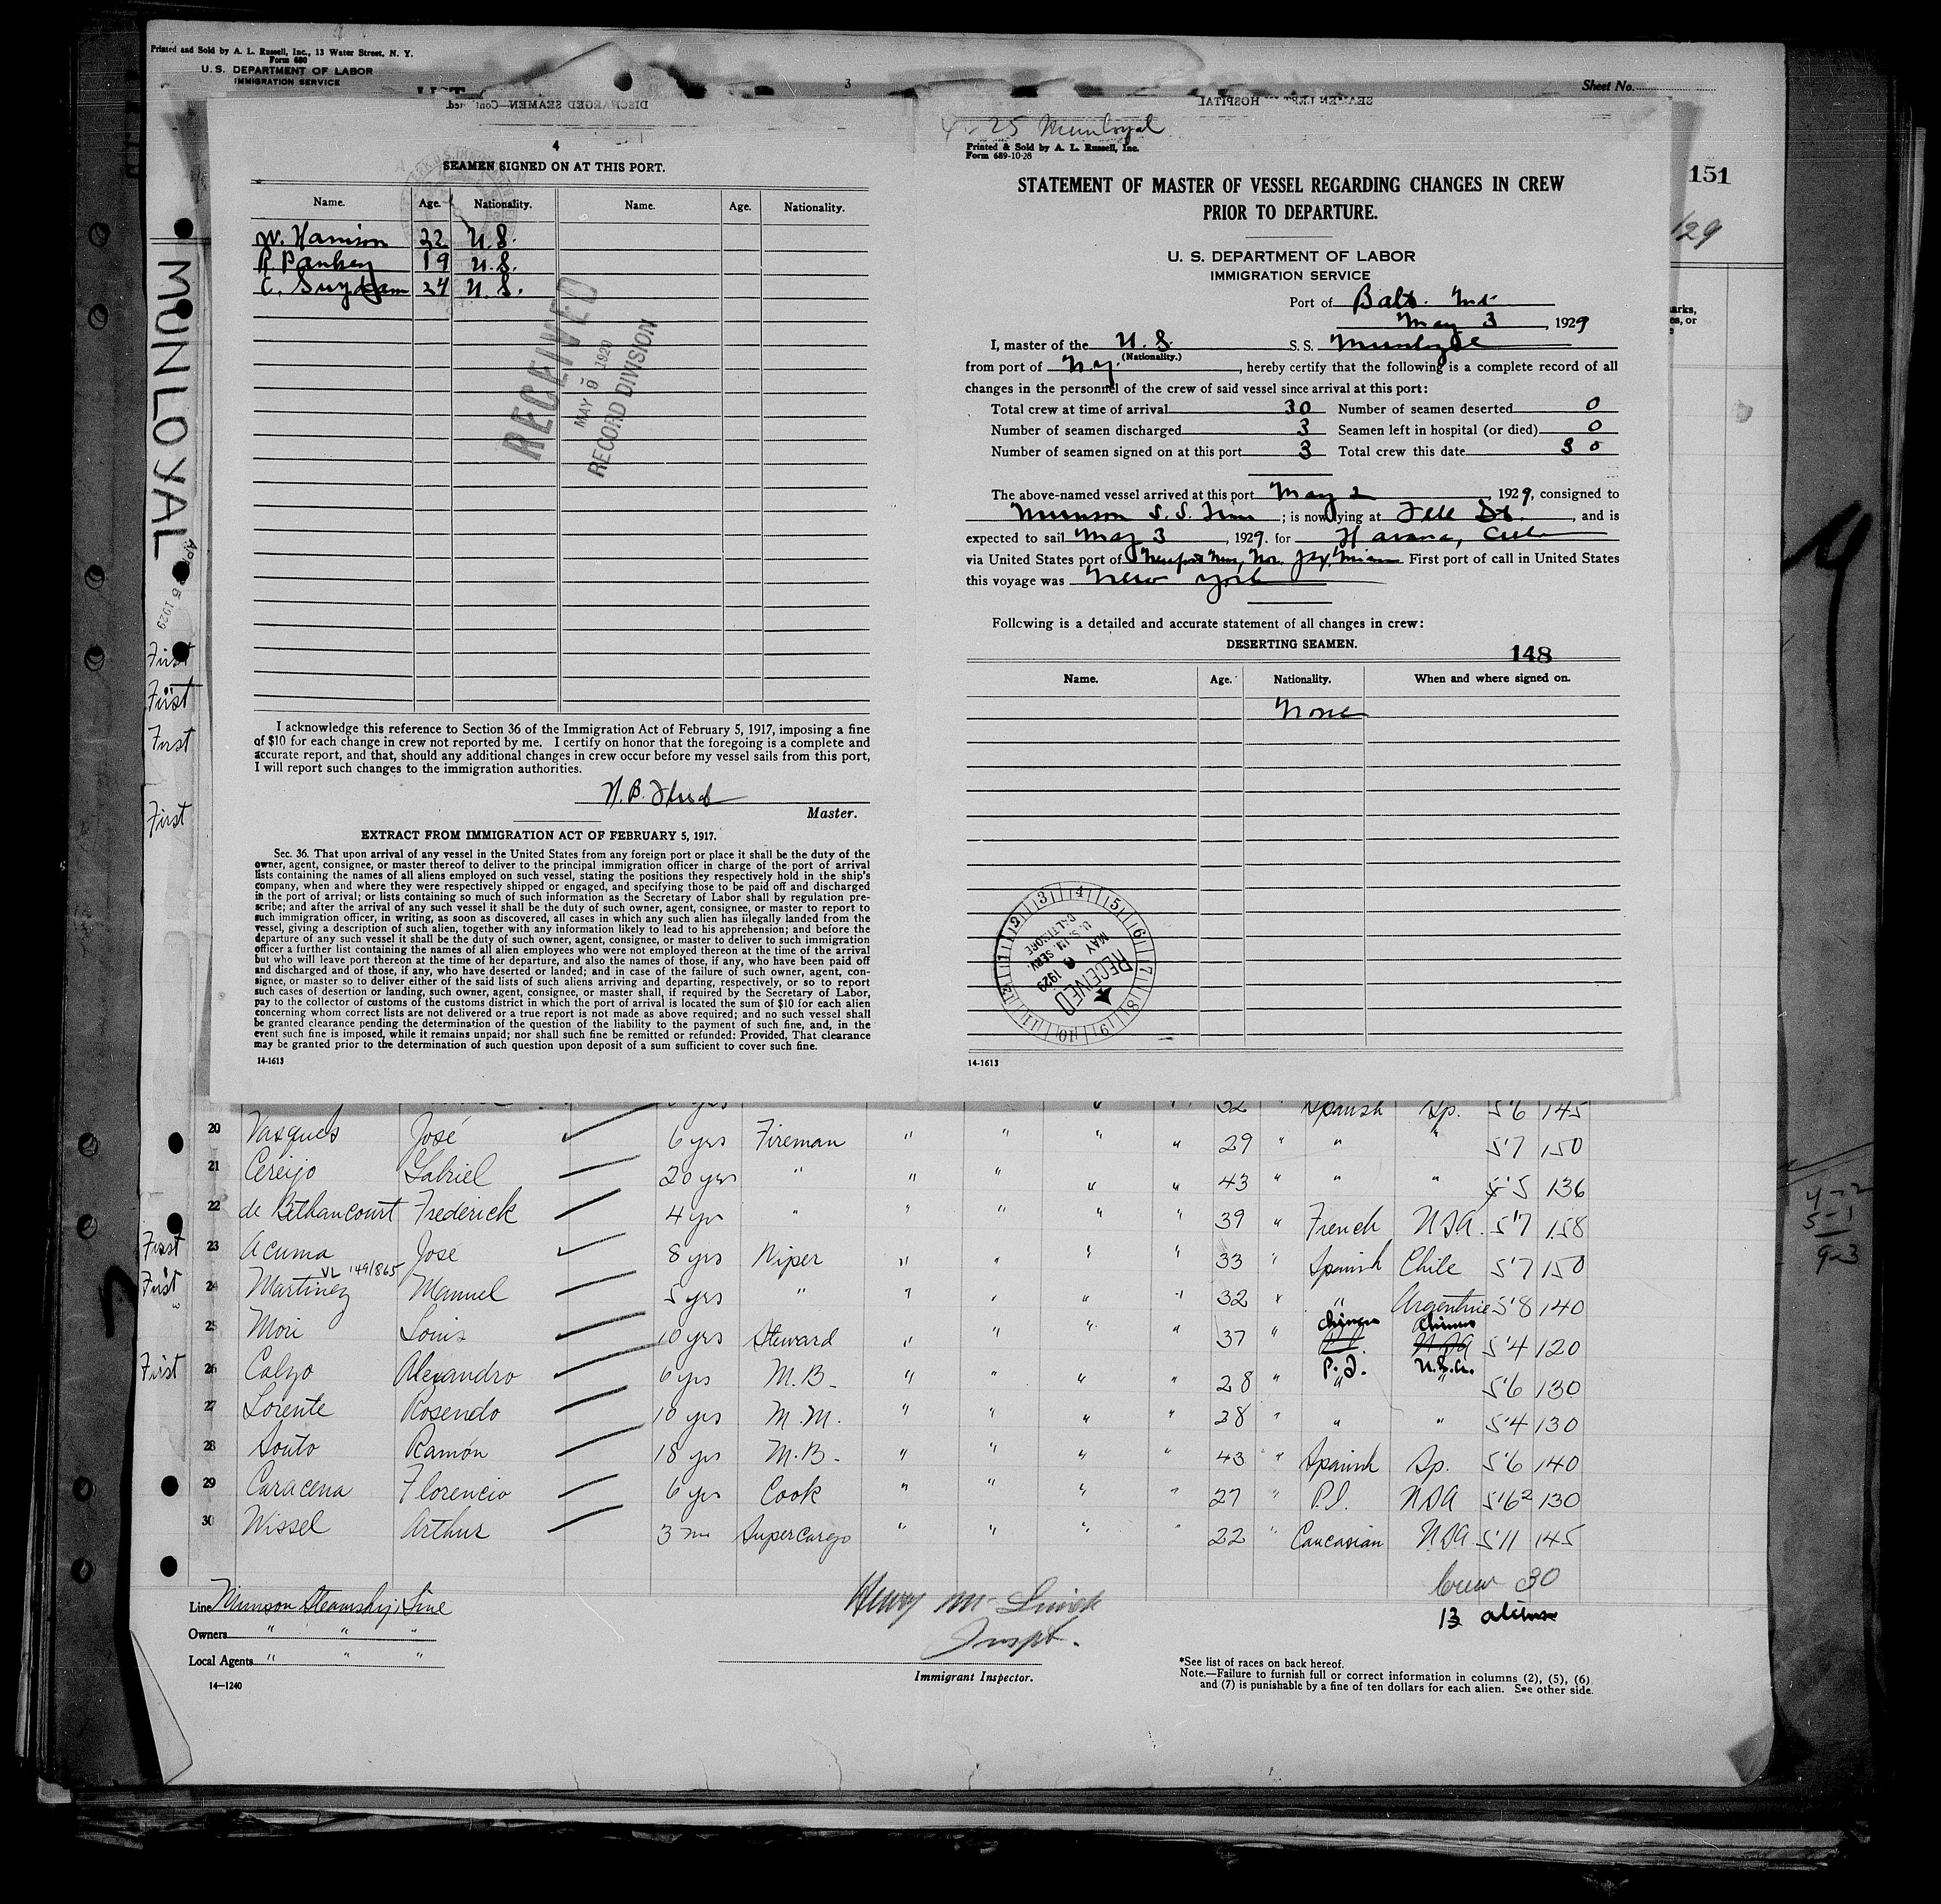 Printed and Sold by A. L. Russell, Inc., 13 Water Street, N. Y.
Form 680
U. S. DEPARTMENT OF LABOR
IMMIGRATION SERVICE
3
Sheet No.
151
129
MUNLOYAL
4
SEAMEN SIGNED ON AT THIS PORT.
Name. Age. Nationality. Name. Age. Nationality.
W. Harrison 32 U.S.
R. Pankey 19 U.S.
C. Suydam 24 U.S.
RECEIVED
MAY 9 1929
RECORD DIVISION
I acknowledge this reference to Section 36 of the Immigration Act of February 5, 1917, imposing a fine
of $10 for each change in crew not reported by me. I certify on honor that the foregoing is a complete and
accurate report, and that, should any additional changes in crew occur before my vessel sails from this port,
I will report such changes to the immigration authorities.
Master.
EXTRACT FROM IMMIGRATION ACT OF FEBRUARY 5, 1917.
Sec. 36. That upon arrival of any vessel in the United States from any foreign port or place it shall be the duty of the
owner, agent, consignee, or master thereof to deliver to the principal immigration officer in charge of the port of arrival
lists containing the names of all aliens employed on such vessel, stating the positions they respectively hold in the ship's
company, when and where they were respectively shipped or engaged, and specifying those to be paid off and discharged
in the port of arrival; or lists containing so much of such information as the Secretary of Labor shall by regulation pre-
scribe; and after the arrival of any such vessel it shall be the duty of such owner, agent, consignee, or master to report to
such immigration officer, in writing, as soon as discovered, all cases in which any such alien has illegally landed from the
vessel, giving a description of such alien, together with any information likely to lead to his apprehension; and before the
departure of any such vessel it shall be the duty of such owner, agent, consignee, or master to deliver to such immigration
officer a further list containing the names of all alien employees who were not employed thereon at the time of the arrival
but who will leave port thereon at the time of her departure, and also the names of those, if any, who have been paid off
and discharged and of those, if any, who have deserted or landed; and in case of the failure of such owner, agent, con-
signee, or master so to deliver either of the said lists of such aliens arriving and departing, respectively, or so to report
such cases of desertion or landing, such owner, agent, consignee, or master shall, if required by the Secretary of Labor,
pay to the collector of customs of the customs district in which the port of arrival is located the sum of $10 for each alien
concerning whom correct lists are not delivered or a true report is not made as above required; and no such vessel shall
be granted clearance pending the determination of the question of the liability to the payment of such fine, and, in the
event such fine is imposed, while it remains unpaid; nor shall such fine be remitted or refunded: Provided, That clearance
may be granted prior to the determination of such question upon deposit of a sum sufficient to cover such fine.
14-1613
4-25 Munloyal
Printed & Sold by A. L. Russell, Inc.
Form 689-10-28
STATEMENT OF MASTER OF VESSEL REGARDING CHANGES IN CREW
PRIOR TO DEPARTURE.
U. S. DEPARTMENT OF LABOR
IMMIGRATION SERVICE
Port of Balto. Md.
May 3, 1929
I, master of the U. S. S. S. Munloyal
(Nationality.)
from port of N.Y., hereby certify that the following is a complete record of all
changes in the personnel of the crew of said vessel since arrival at this port:
Total crew at time of arrival 30 Number of seamen deserted 0
Number of seamen discharged 3 Seamen left in hospital (or died) 0
Number of seamen signed on at this port 3 Total crew this date 30
The above-named vessel arrived at this port May 2, 1929, consigned to
Munson S. S. Line; is now lying at Fell St., and is
expected to sail May 3, 1929. for Havana, Cuba
via United States port of Miami First port of call in United States
this voyage was New York
Following is a detailed and accurate statement of all changes in crew:
DESERTING SEAMEN.
148
Name. Age. Nationality. When and where signed on.
None
RECEIVED
MAY 1929
U. S. IM. SERV.
BALTIMORE
14-1613
First
First
First
First
32 Spanish Sp. 5'6 145
20 Vasques José 6 yrs Fireman " " " " 29 " " " 5'7 150
21 Cereijo Gabriel 20 yrs " " " " " 43 " " " 5'5 136
22 de Bethancourt Frederick 4 yrs " " " " " 39 " French USA. 5'7 158
First 23 Acuma José 8 yrs Wiper " " " " 33 " Spanish Chile 5'7 150
VL 149/865
First 24 Martinez Manuel 5 yrs " " " " " 32 " " Argentine 5'8 140
25 Mori Louis 10 yrs Steward " " " " 37 " Chinese Chinese 5'4 120
First 26 Calzo Alexandro 6 yrs M.B. " " " " 28 " P.I. U.S.A. 5'6 130
27 Lorente Rosendo 10 yrs M.M. " " " " 28 " " " 5'4 130
28 Souto Ramón 18 yrs M.B. " " " " 43 " Spanish Sp. 5'6 140
29 Caracena Florencio 6 yrs Cook " " " " 27 " P.I. USA 5'6² 130
30 Wissel Arthur 3 mo Supercargo " " " " 22 " Caucasian USA 5'11 145
Crew 30
13 aliens
Line Munson Steamship Line
Owners " " "
Local Agents " " "
14—1240
Inspt.
Immigrant Inspector.
*See list of races on back hereof.
Note.—Failure to furnish full or correct information in columns (2), (5), (6)
and (7) is punishable by a fine of ten dollars for each alien. See other side.
4-2
5-1
9-3